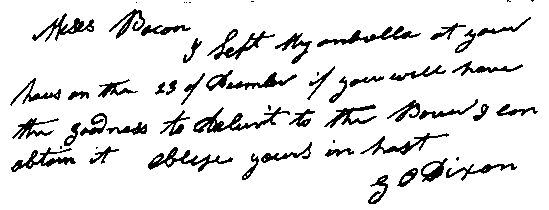 Miss Bacon
I left My umbrella at your
hous on the 23 of December if you will have
the goodness to deliver it to the Bearer I can
obtain it oblige yours in hast
G O Dixon